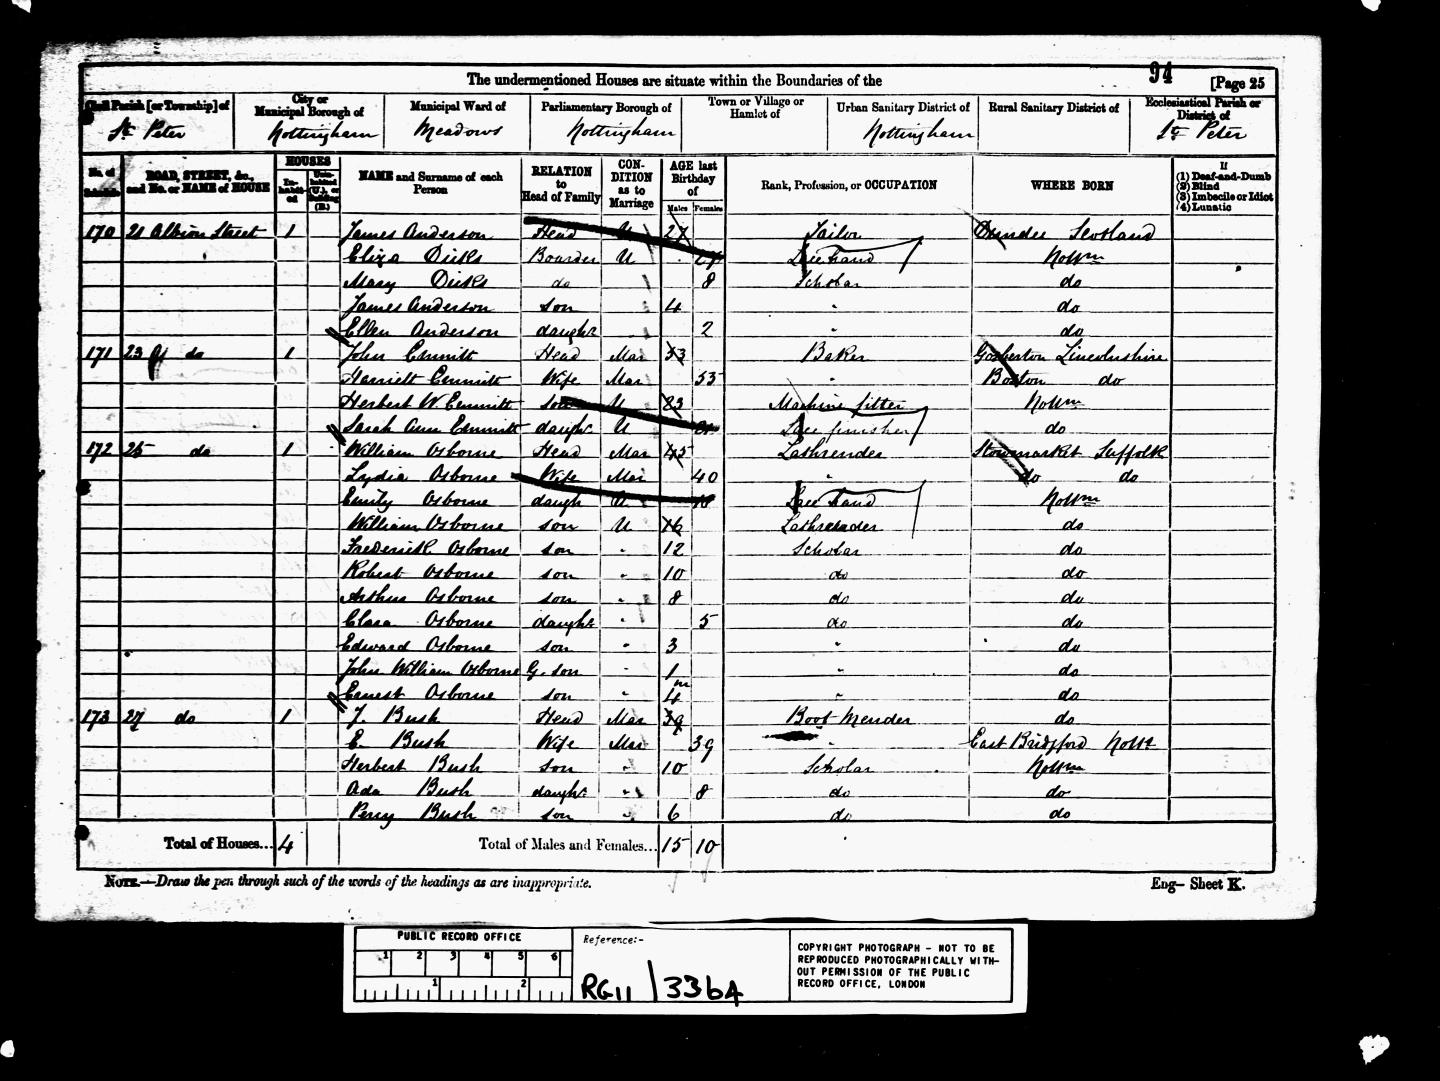 94
The undermentioned Houses are situate within the Boundaries of the [Page 25
Civil Parish [or Township] of City or Municipal Borough of Municipal Ward of Parliamentary Borough of Town or Village or Hamlet of Urban Sanitary District of Rural Sanitary District of Ecclesiastical Parish or District of
St Peter Nottingham Meadows Nottingham Nottingham St Peter
No. of Schedule ROAD, STREET, &c., and No. or NAME of HOUSE HOUSES Inhabited Uninhabited (U.), or Building (B.) NAME and Surname of each Person RELATION to Head of Family CONDITION as to Marriage AGE last Birthday of Males Females Rank, Profession, or OCCUPATION WHERE BORN If (1) Deaf-and-Dumb (2) Blind (3) Imbecile or Idiot (4) Lunatic
170 21 Albion Street 1 James Anderson Head U 27 Sailor Dundee Scotland
Eliza Dicks Boarder U 27 Lace Hand Nottm
Mary Dicks do 8 Scholar do
James Anderson son 4 " do
Ellen Anderson daughr 2 do
171 23 do 1 John Emmitt Head Mar 53 Baker Gosberton Lincolnshire
Harriett Emmitt Wife Mar 55 " Boston do
Herbert W Emmitt son U 23 Machine fitter Nottm
Sarah Ann Emmitt daughr U Lace finisher do
172 25 do 1 William Osborne Head Mar 45 Lathrender Stowmarket Suffolk
Lydia Osborne Wife Mar 40 " do do
Emily Osborne daugh U 18 Lace Hand Nottm
William Osborne son U 16 Lathrender do
Frederick Osborne son " 12 Scholar do
Robert Osborne son " 10 do do
Arthur Osborne son " 8 do do
Clara Osborne daughr " 5 do do
Edward Osborne son " 3 " do
John William Osborne G. son " 1 " do
Ernest Osborne son " 4m " do
173 27 do 1 J. Bush Head Mar 39 Boot Mender do
E. Bush Wife Mar 39 " East Bridgford Notts
Herbert Bush son " 10 Scholar Nottm
Ada Bush daughr " 8 do do
Percy Bush son " 6 do do
Total of Houses... 4 Total of Males and Females... 15 10
NOTE.—Draw the pen through such of the words of the headings as are inappropriate. Eng– Sheet K.
PUBLIC RECORD OFFICE
1 2 3 4 5 6
1 2
Reference:-
RG11 / 3364
COPYRIGHT PHOTOGRAPH - NOT TO BE
REPRODUCED PHOTOGRAPHICALLY WITH-
OUT PERMISSION OF THE PUBLIC
RECORD OFFICE, LONDON